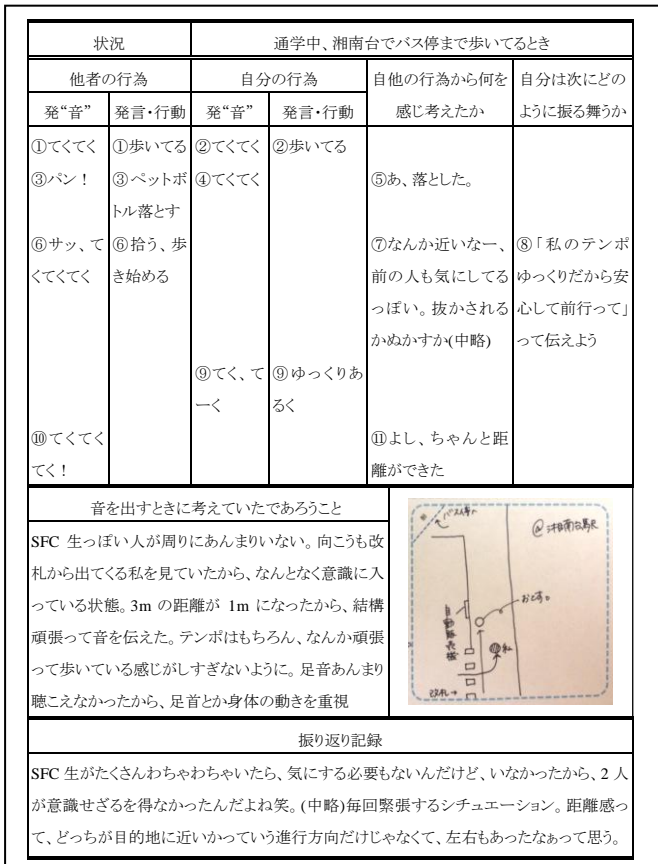 状況
通学中、湘南台でバス停まで歩いてるとき
他者の行為
自分の行為
自他の行為から何を
感じ考えたか
自分は次にどの
ように振る舞うか
発“音”
発言・行動
発“音”
発言・行動
①てくてく
①歩いてる
②てくてく
②歩いてる
③パン！
③ペットボ
トル落とす
④てくてく
⑤あ、落とした。
⑥サッ、て
くてくてく
⑥拾う、歩
き始める
⑦なんか近いなー、
前の人も気にしてる
っぽい。抜かされる
かぬかすか(中略)
⑧「私のテンポ
ゆっくりだから安
心して前行って」
って伝えよう
⑨てく、て
ーく
⑨ゆっくりあ
るく
⑩てくてく
てく！
⑪よし、ちゃんと距
離ができた
音を出すときに考えていたであろうこと
SFC 生っぽい人が周りにあんまりいない。向こうも改
札から出てくる私を見ていたから、なんとなく意識に入
っている状態。3m の距離が 1m になったから、結構
頑張って音を伝えた。テンポはもちろん、なんか頑張
って歩いている感じがしすぎないように。足音あんまり
聴こえなかったから、足音とか身体の動きを重視
バス停へ
@湘南台駅
おとす。
私
改札→
振り返り記録
SFC 生がたくさんわちゃわちゃいたら、気にする必要もないんだけど、いなかったから、2 人
が意識せざるを得なかったんだよね笑。(中略)毎回緊張するシチュエーション。距離感っ
て、どっちが目的地に近いかっていう進行方向だけじゃなくて、左右もあったなぁって思う。